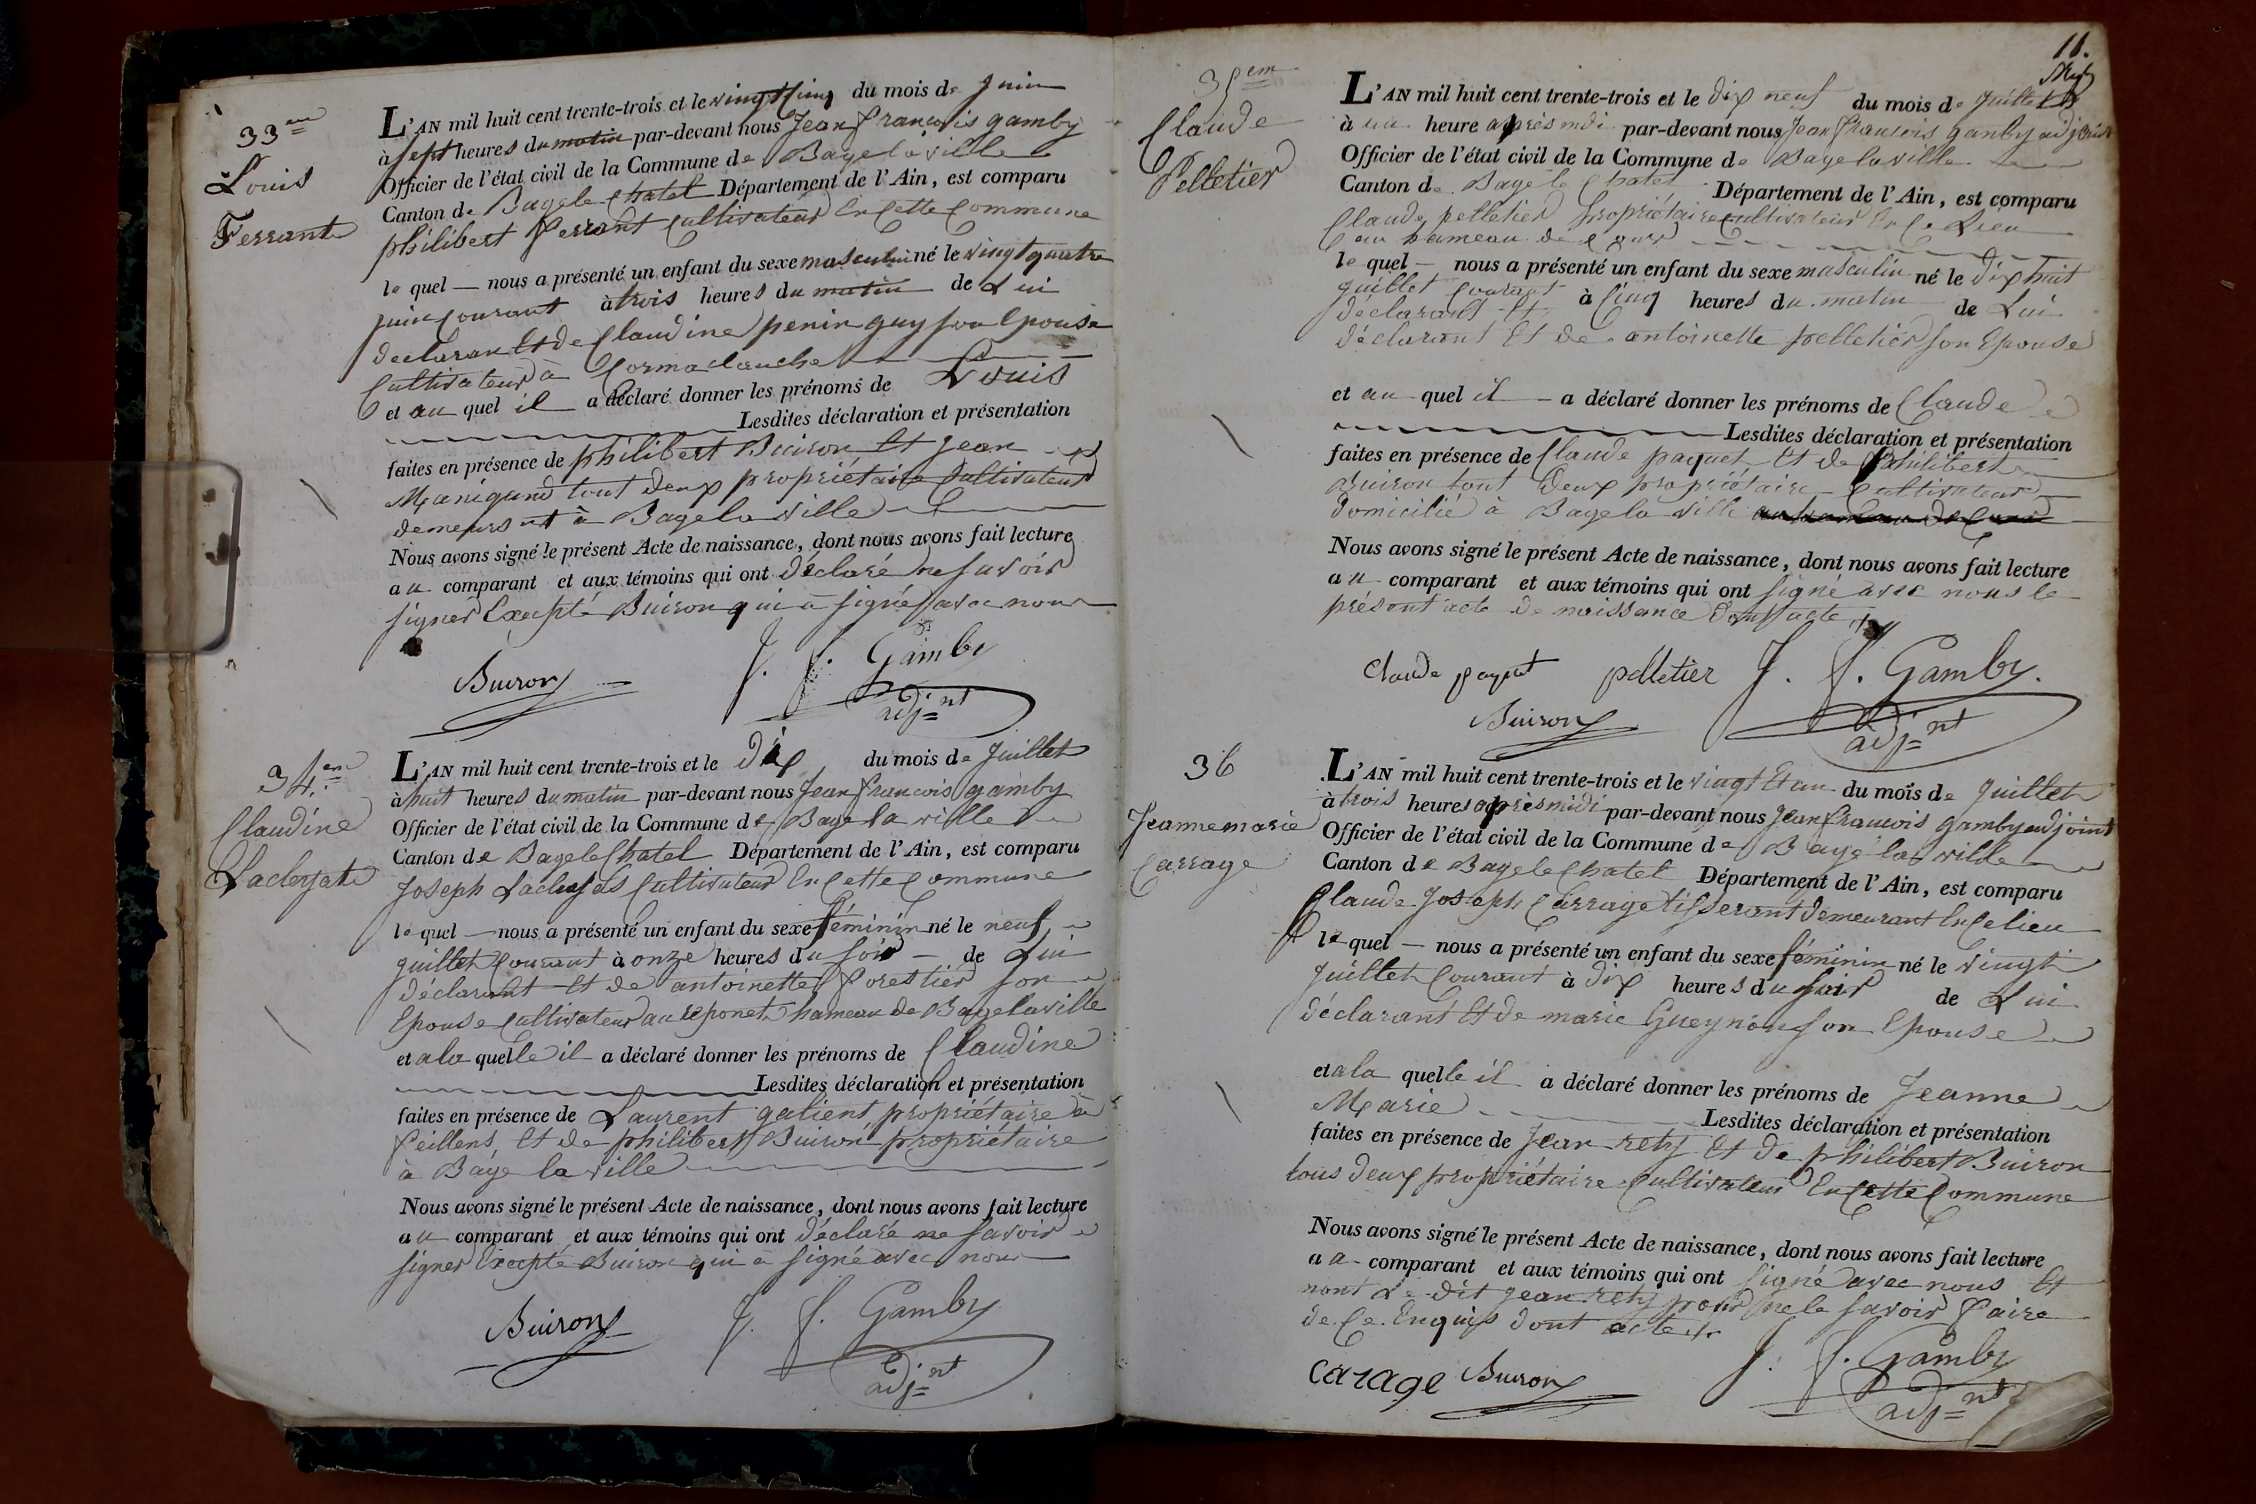 33eme
Louis
Ferrant
L'AN mil huit cent trente-trois et le vingt cinq du mois de Juin
à sept heures du matin par-devant nous Jean françois gamby
Officier de l'état civil de la Commune de Bagé la ville
Canton de Bagé le Chatel Département de l'Ain, est comparu
philibert ferrant Cultivateur En Cette Commune
le quel nous a présenté un enfant du sexe masculin né le vingt quatre
juin Courant à trois heures du matin de Lui
declarant Et de Claudine penin guy son Epouse
Cultivateur à
et au quel il a déclaré donner les prénoms de Louis
Lesdites déclaration et présentation
faites en présence de philibert Buiron Et Jean
Manigand tout deux propriétaire Cultivateur
demeurant à Bagé la ville
Nous avons signé le présent Acte de naissance, dont nous avons fait lecture
au comparant et aux témoins qui ont déclaré ne savoir
signer Excepté Buiron qui a signé avec nous
Buiron J. f. Gamby
adjnt
34.em
Claudine
L'AN mil huit cent trente-trois et le Dix du mois de Juillet
à huit heures du matin par-devant nous Jean françois gamby
Officier de l'état civil de la Commune de Bagé la ville
Canton de Bagé le Chatel Département de l'Ain, est comparu
Joseph Cultivateur En Cette Commune
le quel nous a présenté un enfant du sexe féminin né le neuf
juillet Courant à onze heures du soir de Lui
déclarant Et de antoinette forestier son
Epouse Cultivateur au hameau de Bagé la ville
et a la quelle il a déclaré donner les prénoms de Claudine
Lesdites déclaration et présentation
faites en présence de Laurent galient propriétaire à
feillens, Et de philibert Buiron propriétaire
à Bagé la ville
Nous avons signé le présent Acte de naissance, dont nous avons fait lecture
au comparant et aux témoins qui ont déclaré ne savoir
signer Excepté Buiron qui a signé avec nous
Buiron J. f. Gamby
adjnt
11.
35em
Claude
Pelletier
L'AN mil huit cent trente-trois et le dix neuf du mois de juillet
à une heure après midi par-devant nous Jean françois gamby adjoint
Officier de l'état civil de la Commune de Bagé la ville
Canton de Bagé le Chatel Département de l'Ain, est comparu
Claude pelletier propriétaire Cultivateur En Ce Lieu
au hameau de
le quel nous a présenté un enfant du sexe masculin né le dix huit
juillet Courant à Cinq heures du matin de Lui
déclarant Et
déclarant Et de antoinette pelletier son Epouse
et au quel il a déclaré donner les prénoms de Claude
Lesdites déclaration et présentation
faites en présence de Claude paquet Et de philibert
Buiron tout Deux propriétaire Cultivateur
domicilié à Bagé la ville
Nous avons signé le présent Acte de naissance, dont nous avons fait lecture
au comparant et aux témoins qui ont signé avec nous le
présent acte de naissance dont acte
Claude paquet pelletier J. f. Gamby.
Buiron adjnt
36
Jeanne marie
Carrage
L'AN mil huit cent trente-trois et le vingt Et un du mois de juillet
à trois heures après midi par-devant nous Jean françois gamby adjoint
Officier de l'état civil de la Commune de Bagé la ville
Canton de Bagé le Chatel Département de l'Ain, est comparu
Claude Joseph Carrage tisserant demeurant En Ce lieu
le quel nous a présenté un enfant du sexe féminin né le vingt
juillet Courant à dix heures du soir de Lui
déclarant Et de marie Gueynon son Epouse
et a la quelle il a déclaré donner les prénoms de Jeanne
Marie Lesdites déclaration et présentation
faites en présence de Jean rety Et de philibert Buiron
tous deux propriétaire Cultivateur En Cette Commune
Nous avons signé le présent Acte de naissance, dont nous avons fait lecture
au comparant et aux témoins qui ont signé avec nous Et
nont Le dit jean rety pour ne le savoir faire
de Ce Enquis dont acte
carage Buiron J. f. Gamby
adjnt